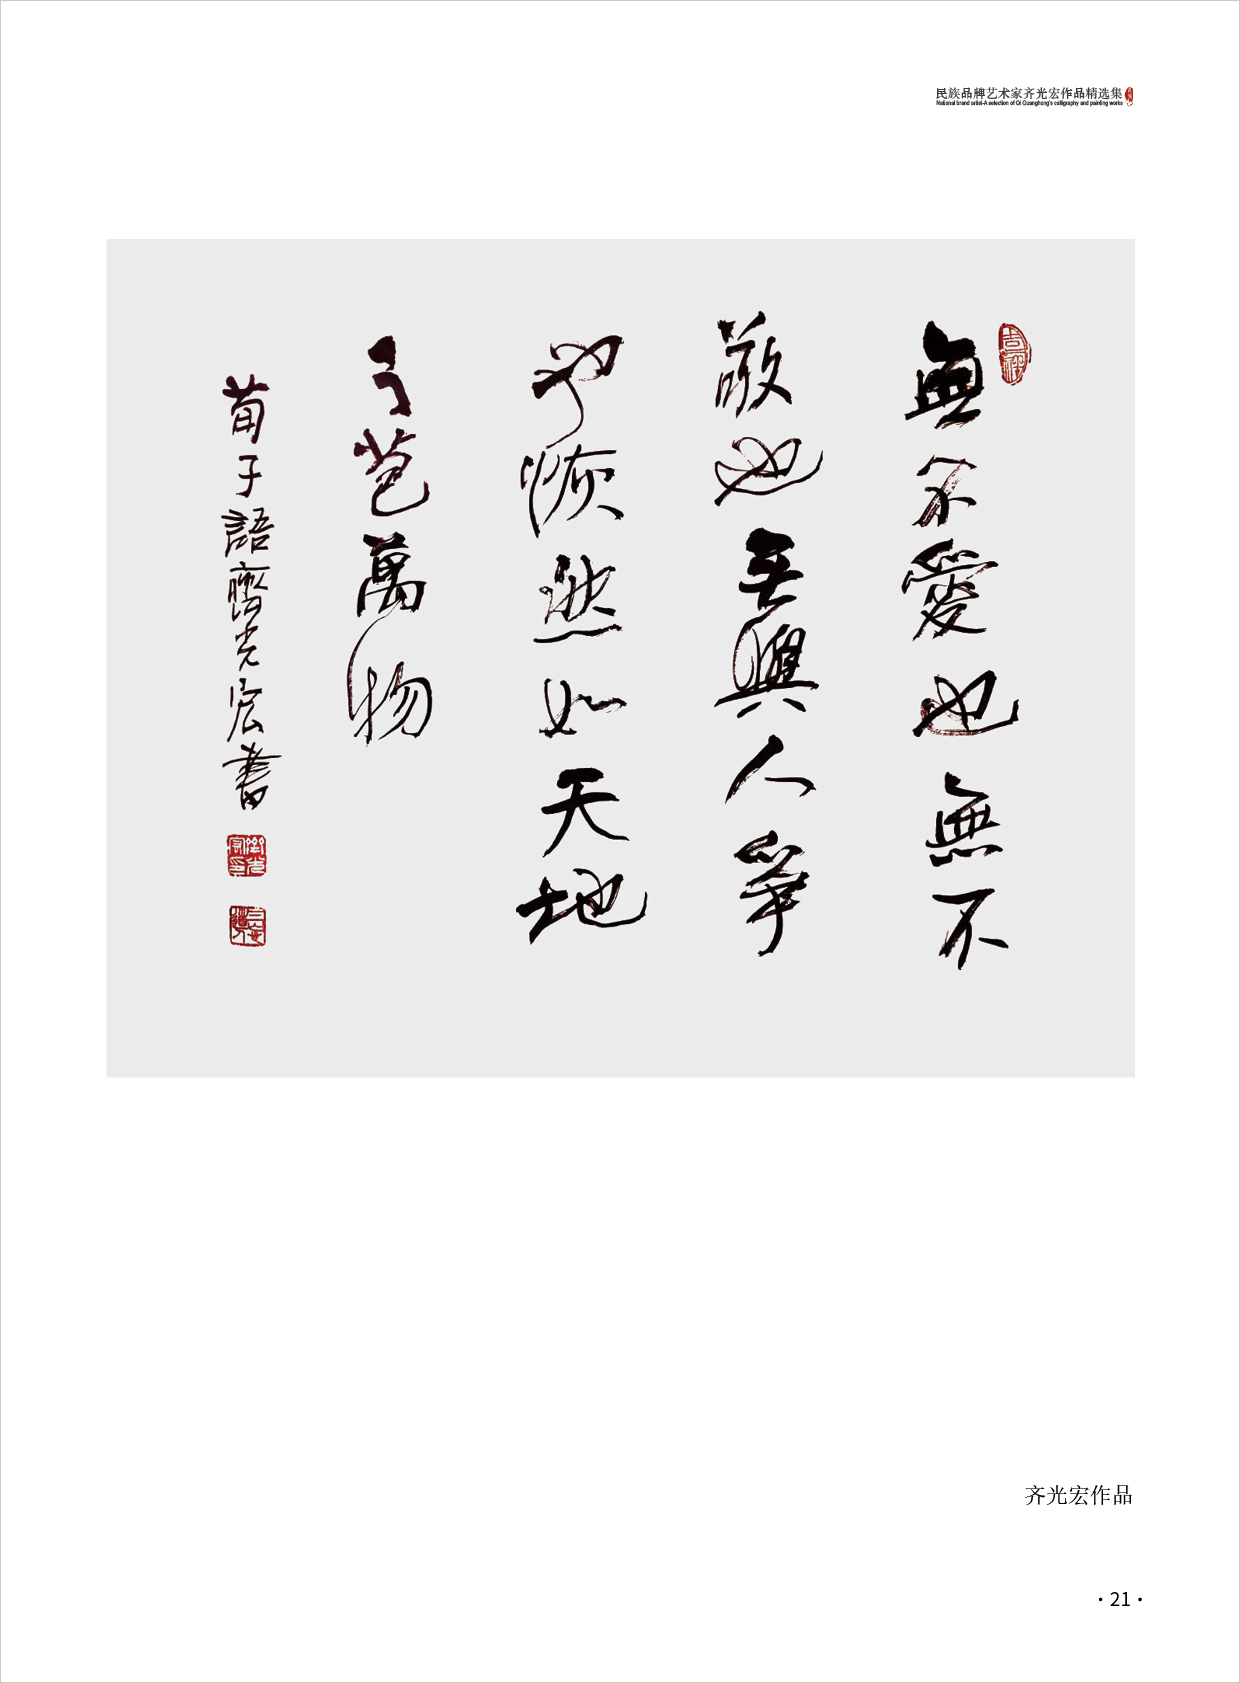 民族品牌艺术家齐光宏作品精选集
National brand artist-A selection of Qi Guanghong's calligraphy and painting works
吉祥
無不愛也無不
敬也無與人爭
也恢然如天地
之苞萬物
荀子語齊光宏書
齐光宏作品
·21·